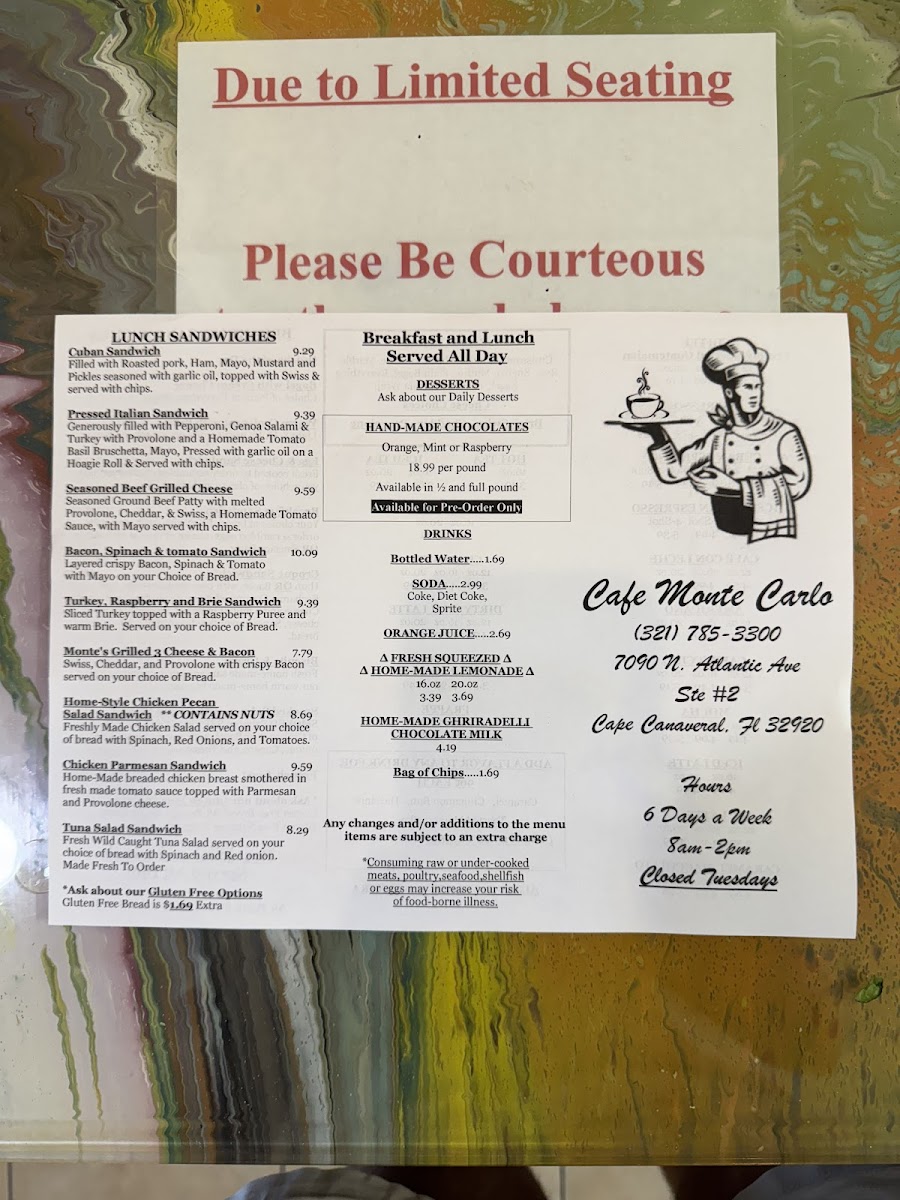 Due to Limited Seating
Please Be Courteous
LUNCH SANDWICHES
Cuban Sandwich 9.29
Filled with Roasted pork, Ham, Mayo, Mustard and
Pickles seasoned with garlic oil, topped with Swiss &
served with chips.
Pressed Italian Sandwich 9.39
Generously filled with Pepperoni, Genoa Salami &
Turkey with Provolone and a Homemade Tomato
Basil Bruschetta, Mayo, Pressed with garlic oil on a
Hoagie Roll & Served with chips.
Seasoned Beef Grilled Cheese 9.59
Seasoned Ground Beef Patty with melted
Provolone, Cheddar, & Swiss, a Homemade Tomato
Sauce, with Mayo served with chips.
Bacon, Spinach & tomato Sandwich 10.09
Layered crispy Bacon, Spinach & Tomato
with Mayo on your Choice of Bread.
Turkey, Raspberry and Brie Sandwich 9.39
Sliced Turkey topped with a Raspberry Puree and
warm Brie. Served on your choice of Bread.
Monte's Grilled 3 Cheese & Bacon 7.79
Swiss, Cheddar, and Provolone with crispy Bacon
served on your choice of Bread.
Home-Style Chicken Pecan
Salad Sandwich **CONTAINS NUTS 8.69
Freshly Made Chicken Salad served on your choice
of bread with Spinach, Red Onions, and Tomatoes.
Chicken Parmesan Sandwich 9.59
Home-Made breaded chicken breast smothered in
fresh made tomato sauce topped with Parmesan
and Provolone cheese.
Tuna Salad Sandwich 8.29
Fresh Wild Caught Tuna Salad served on your
choice of bread with Spinach and Red onion.
Made Fresh To Order
*Ask about our Gluten Free Options
Gluten Free Bread is $1.69 Extra
Breakfast and Lunch
Served All Day
DESSERTS
Ask about our Daily Desserts
HAND-MADE CHOCOLATES
Orange, Mint or Raspberry
18.99 per pound
Available in ½ and full pound
Available for Pre-Order Only
DRINKS
Bottled Water.....1.69
SODA.....2.99
Coke, Diet Coke,
Sprite
ORANGE JUICE.....2.69
Δ FRESH SQUEEZED Δ
Δ HOME-MADE LEMONADE Δ
16.oz 20.oz
3.39 3.69
HOME-MADE GHRIRADELLI
CHOCOLATE MILK
4.19
Bag of Chips.....1.69
Any changes and/or additions to the menu
items are subject to an extra charge
*Consuming raw or under-cooked
meats, poultry,seafood,shellfish
or eggs may increase your risk
of food-borne illness.
Cafe Monte Carlo
(321) 785-3300
7090 N. Atlantic Ave
Ste #2
Cape Canaveral, Fl 32920
Hours
6 Days a Week
8am-2pm
Closed Tuesdays